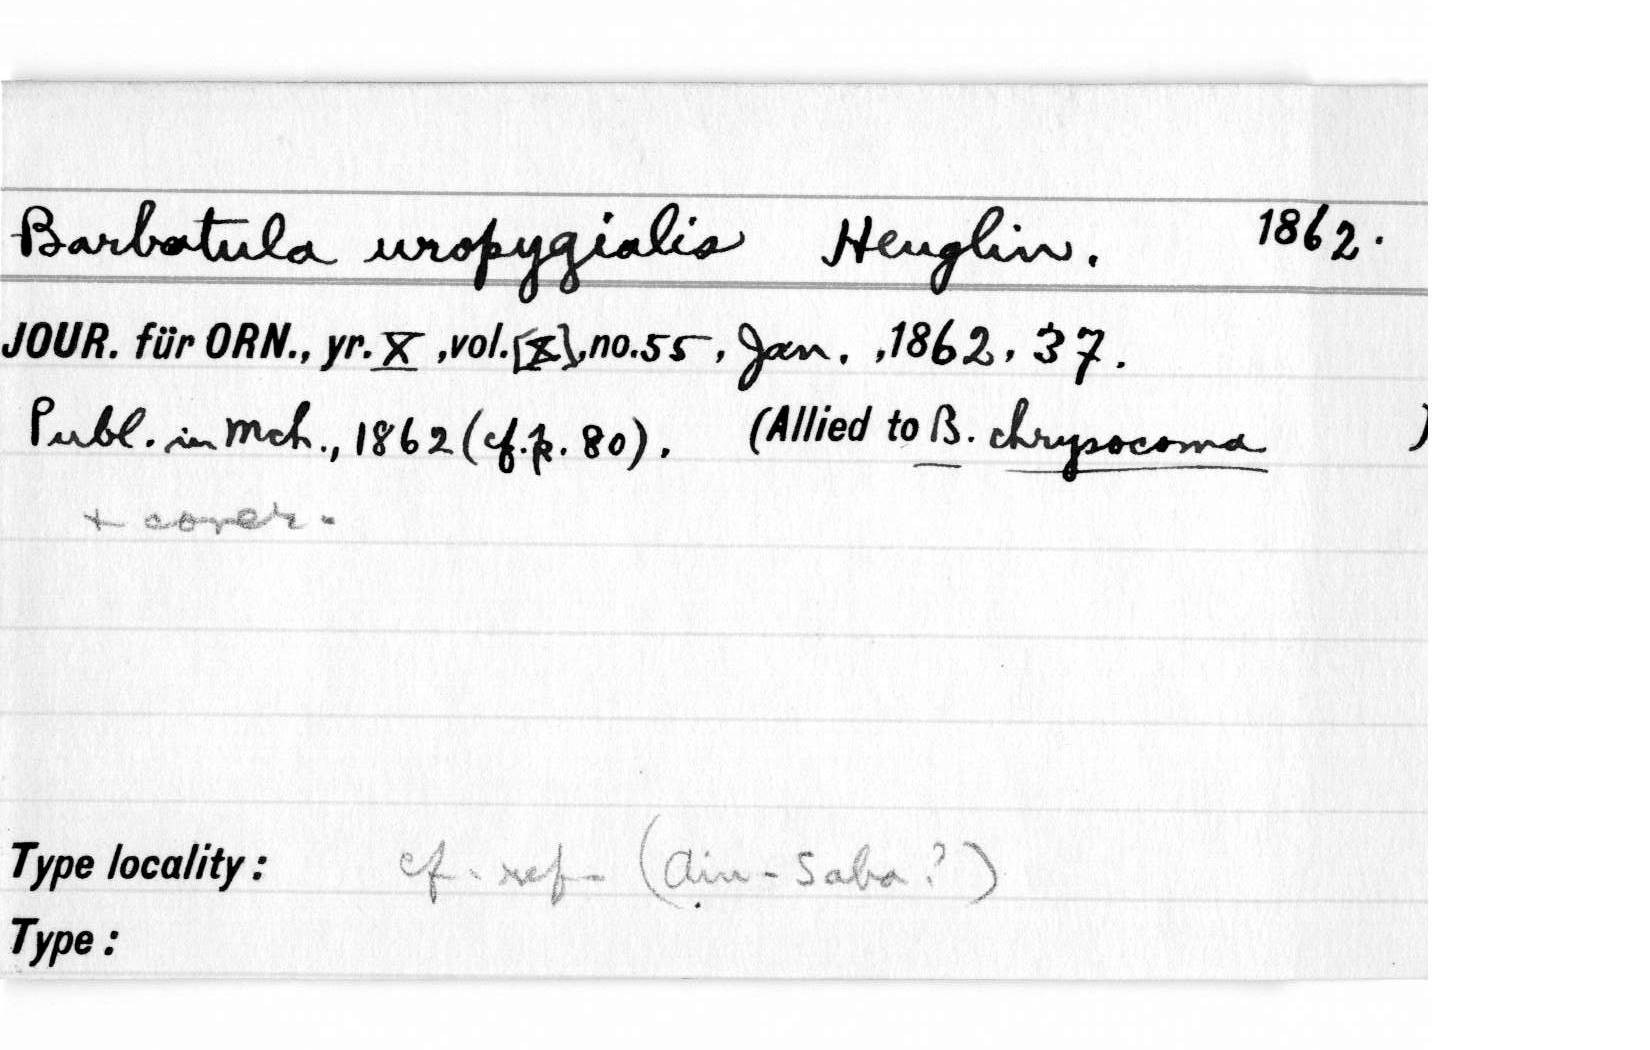 Barbatula uropygialis Heuglin. 1862.
JOUR. für ORN., yr. X, vol. [X], no. 55, Jan., 1862, 37.
Publ. in Mch., 1862 (cf. p. 80). (Allied to B. chrysocoma )
+ cover.
Type locality: cf. ref. (Ain-Saba?)
Type: